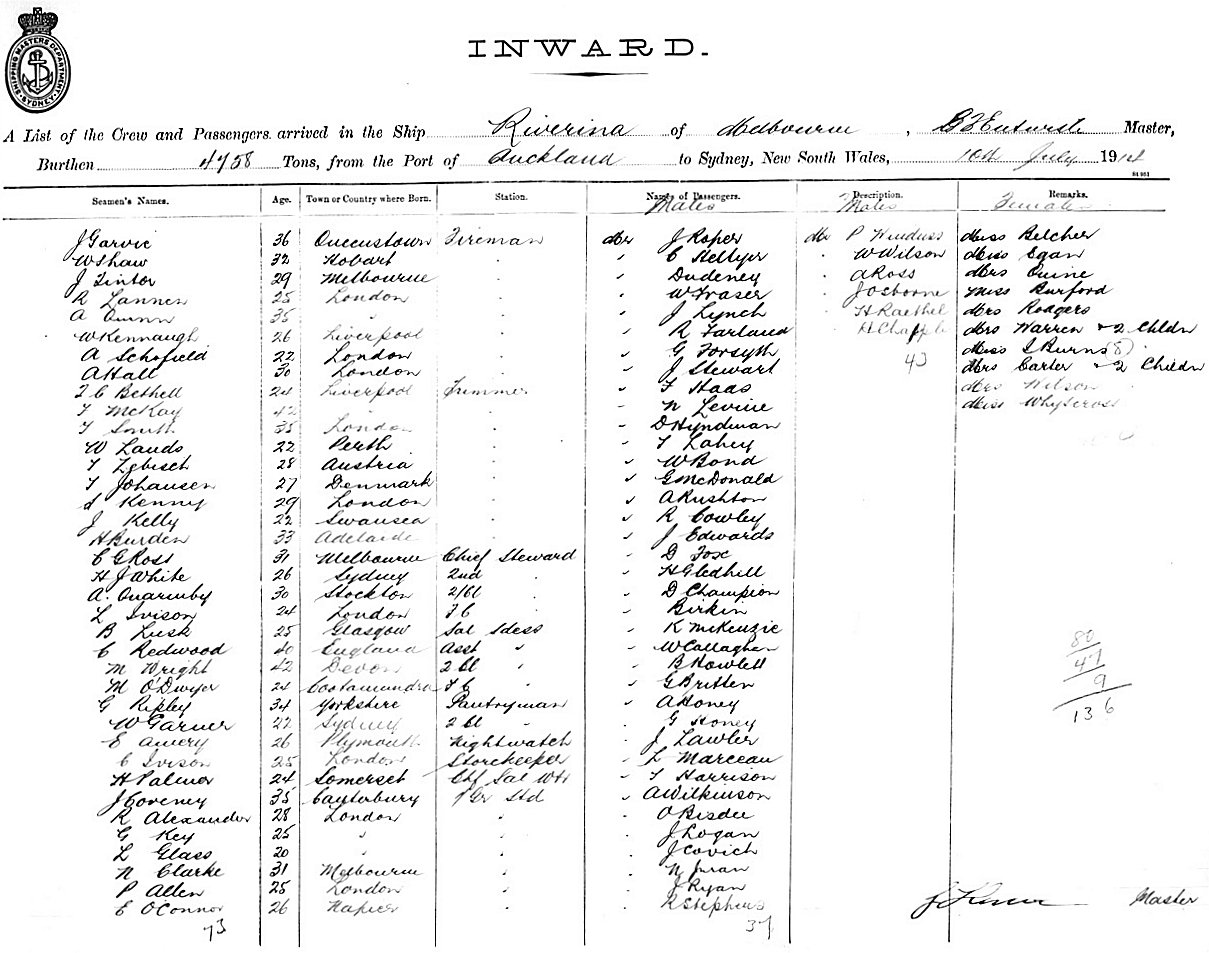 SHIPPING MASTERS DEPARTMENT SYDNEY
INWARD.
A List of the Crew and Passengers arrived in the Ship Riverina of Melbourne, Master,
Burthen 4758 Tons, from the Port of Auckland to Sydney, New South Wales, 10th July 1914
Seamen's Names. Age. Town or Country where Born. Station. Names of Passengers. Description. Remarks.
Males Males Females
J Garvie 36 Queenstown Fireman Mr J Roper Mr P Hinduss Miss Belcher
W Shaw 32 Hobart " C Hellyer " W Wilson Miss Egan
J Tintor 29 Melbourne " Dudeney " A Ross Mrs Quine
R Lannen 25 London " W Fraser " J Osborne Miss Burford
A Quinn 35 " " J Lynch " H Raethel Mrs Rodgers
W Kennaugh 26 Liverpool " R Farland " H Chapple Mrs Warren & 2 Childn
A Schofield 22 London " G Forsyth 43 Miss I Burns (8)
A Hall 30 London " J Stewart Mrs Carter & 2 Childn
T C Bethell 24 Liverpool Trimmer " F Haas Mrs Wilson
T McKay 42 " " N Levine Miss Whytcross
T Smith 35 London " D Hyndman
W Lauds 22 Perth " T Lahey
T Zebisch 28 Austria " W Bond
T Johansen 27 Denmark " G McDonald
S Kenny 29 London " A Rushton
J Kelly 22 Swansea " R Cowley
H Burden 33 Adelaide " J Edwards
C G Ross 31 Melbourne Chief Steward " D Fox
H J White 26 Sydney 2nd " " H Gledhill
A. Quarmby 30 Stockton 2/Cl " " D Champion
L Ivison 24 London F C " " Birkin
B Lusk 25 Glasgow Sal Mess " K McKenzie
C Redwood 40 England Asst " " W Callaghan
M Wright 42 Devon 2 Cl " " B Howlett
M O'Dwyer 24 Cootamundra F C " " G Britten
G Ripley 34 Yorkshire Pantryman " A Honey
W Garner 22 Sydney 2 Cl " " G Honey
E Amery 26 Plymouth Nightwatch " J Lawler
C Ivison 25 London Storekeeper " L Marceau
H Palmer 24 Somerset Chf Sal Wtr " T Harrison
J Coveney 35 Canterbury 1 Gr Std " A Wilkinson
R Alexander 28 London " " O Bisdee
G Key 25 " " " J Logan
L Glass 20 " " " J Covich
N Clarke 31 Melbourne " " N Juran
P Allen 25 London " " J Ryan
E O'Connor 26 Napier " " R Stephens
73 37
80
47
9
136
Master